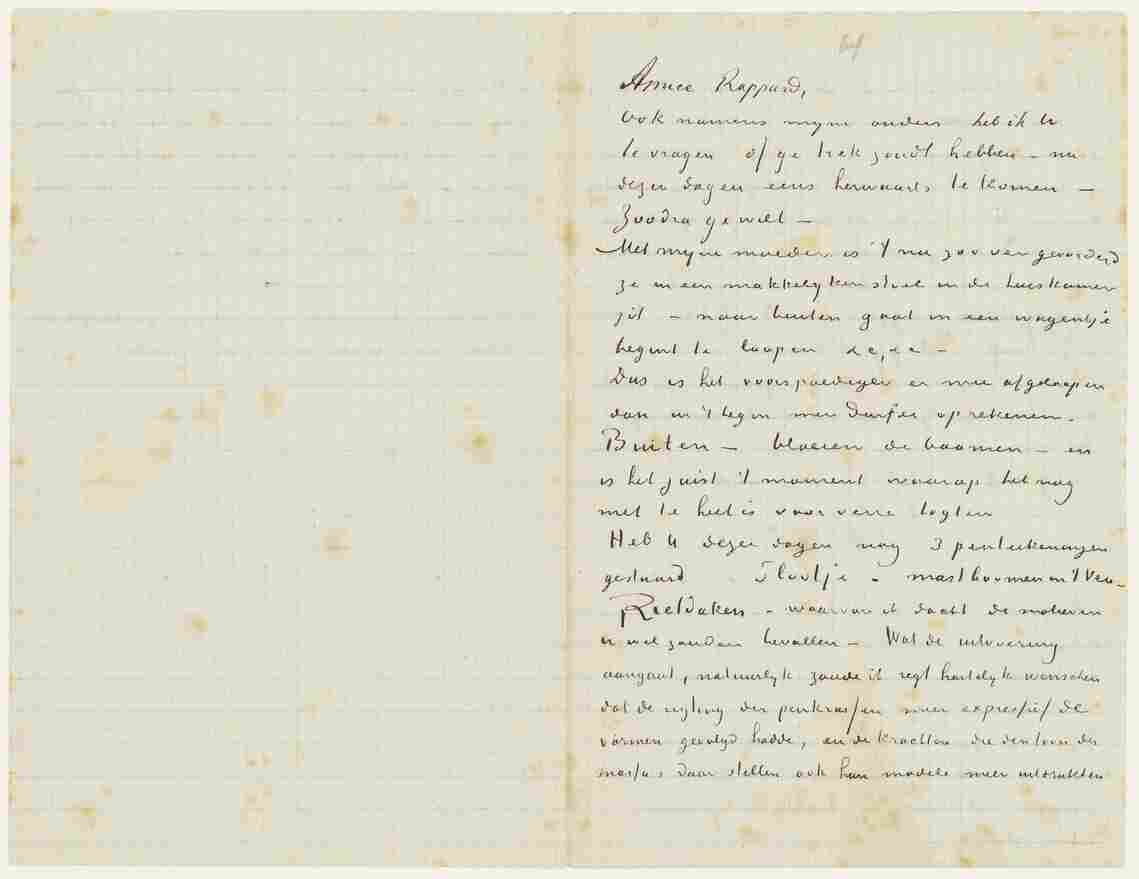 Amice Rappard,
Ook namens mijne ouders heb ik U
te vragen of ge trek zoudt hebben – nu
dezer dagen eens herwaarts te komen –
Zoodra ge wilt –
Met mijne moeder is 't nu zoo ver gevorderd
ze in een makkelijken stoel in de huiskamer
zit – naar buiten gaat in een wagentje
begint te loopen &c, &c –
Dus is het voorspoediger er mee afgeloopen
dan in 't begin men durfde op rekenen.
Buiten – bloeien de boomen – en
is het juist 't moment waarop het nog
niet te heet is voor verre togten
Heb U dezer dagen nog 3 penteekeningen
gestuurd Slootje – mastboomen in 't Ven –
Rietdaken – waarvan ik dacht de motieven
U wel zouden bevallen – Wat de uitvoering
aangaat, natuurlijk zoude ik regt hartelijk wenschen
dat de rigting der penkrassen meer expressief de
vormen gevolgd hadde, en de krachten die den toon der
massa's daar stellen ook hun modelé meer uitdrukten